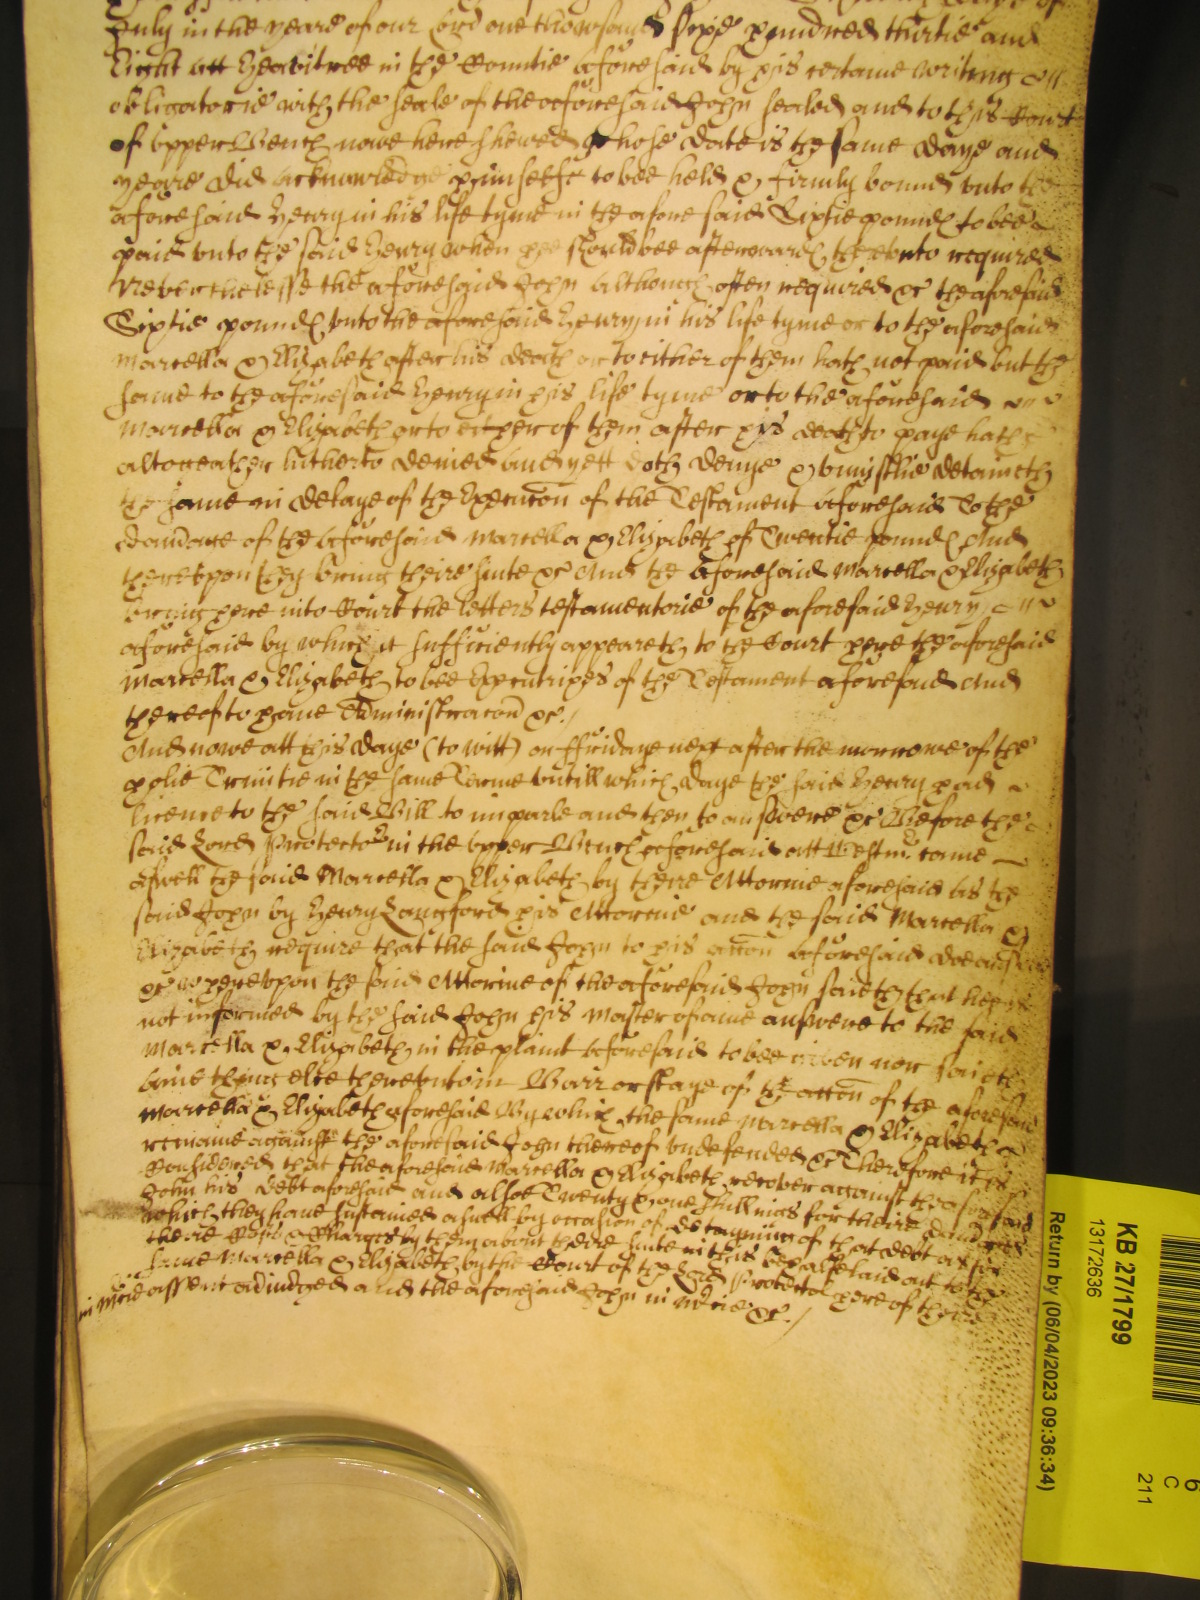 July in the yeare of our Lord one thowsand Sixe hundred thirtie and
Eight att in the Countie aforesaid by his certaine writing
obligatorie with the seale of the aforesaid John sealed and to this Court
of upper Bench nowe here shewed whose date is the same daye and
yeare did acknowledge himselfe to bee held & firmly bound unto the
aforesaid Henry in his life tyme in the aforesaid Sixtie pound to bee
paid unto the said Henry when hee should bee afterward thereunto required
Neverthelesse the aforesaid John although often required &c the aforesaid
Sixtie pound unto the aforesaid Henry in his life tyme or to the aforesaid
Marcella & Elizabeth after his death or to either of them hath not paid but the
same to the aforesaid Henry in his life tyme or to the aforesaid
Marcella & Elizabeth or to either of them after his death to paye hath
altogeather hitherto denied and yett doth denye & uniustlie detaineth
the same in delaye of the Execucon of the Testament aforesaid To the
damage of the aforesaid Marcella & Elizabeth of Twentie pound And
thereupon they bring theire suite &c And the aforesaid Marcella & Elizabeth
bring here into Court the letters testamentorie of the aforesaid Henry
aforesaid by which it sufficiently appeareth to the Court here the aforesaid
Marcella & Elizabeth to bee Executrixes of the Testament aforesaid And
thereof to have Administracon &c.
And nowe att this daye (to witt) on ffridaye next after the morrowe of the
holie Trinitie in the same Terme untill which daye the said Henry had
licence to the said Bill to imparle and then to answere &c Before the
said Lord Protector in the upper Bench aforesaid att Westmr. came
aswell the said Marcella & Elizabeth by there Attornie aforesaid as the
said John by Henry Langford his Attornie and the said Marcella &
Elizabeth require that the said John to his accon aforesaid doe answere
&c whereupon the said Attornie of the aforesaid John saieth that hee is
not informed by the said John his Master of anie answere to the said
Marcella & Elizabeth in the plaint aforesaid to bee given nor saieth
anie thing else thereunto in Barr or staye of the accon of the aforesaid
Marcella & Elizabeth aforesaid By which the same Marcella & Elizabeth
remaine against the aforesaid John thereof undefended &c Therefore it is
Considered that the aforesaid Marcella & Elizabeth recover against the aforesaid
John his debt aforesaid and alsoe Twenty & one shillings for theire damages
which they have sustained aswell by occasion of detayning of that debt as for
there Costs & Charges by them about there suite in this behalfe laid out to the
same Marcella & Elizabeth by the Court of the Lord Protector here of theire
in Mercie assent adiudged and the aforesaid John in Mercie &c.
KB 27/1799
13172636
Return by (06/04/2023 09:36:34)
6
C
211